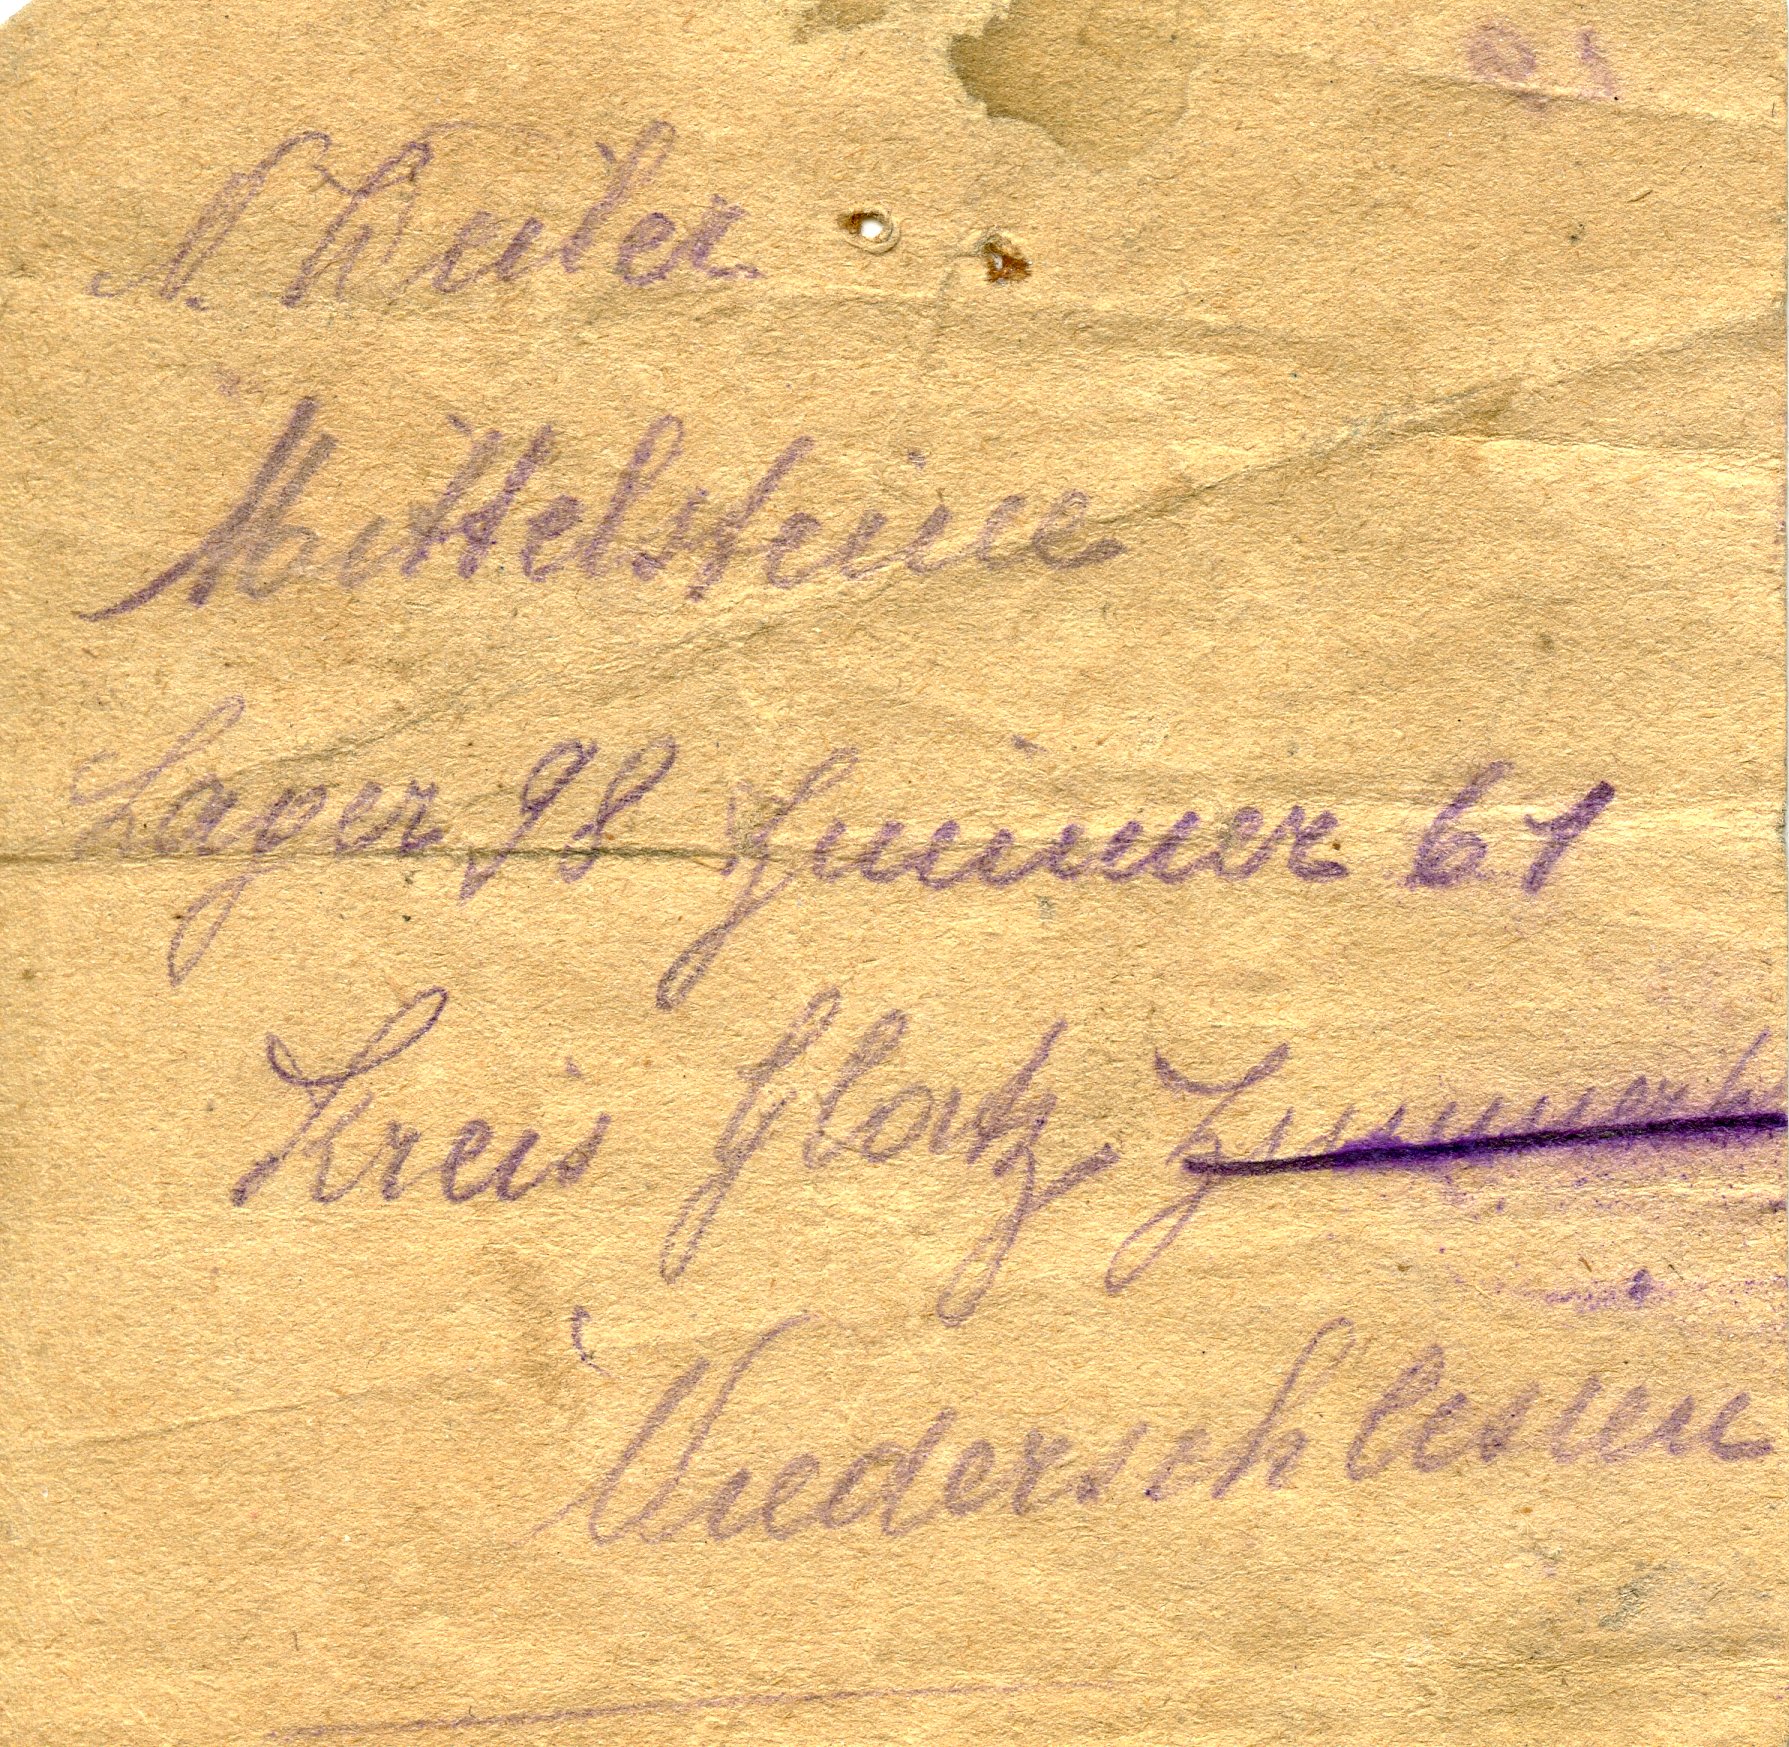 N.
Mittelsteine
Lager 98 Zimmer 61
Kreis Glatz,
Niederschlesien